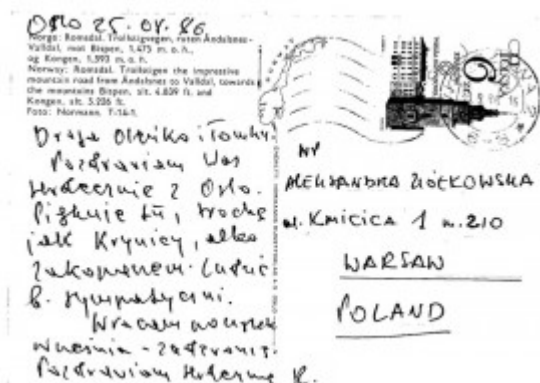 Oslo 25.08.86.
Norge: Romsdal. Trollstigvegen, ruten Åndalsnes-
Valldal, mot Bispen, 1.475 m. o. h.,
og Kongen, 1.593 m. o. h.
Norway: Romsdal. Trollstigen the impressive
mountain road from Åndalsnes to Valldal, towards
the mountains Bispen, alt. 4.839 ft. and
Kongen, alt. 5.226 ft.
Foto: Normann. T-14-1
Droga Oleńko i Tomku.
Pozdrawiam Was
serdecznie z Oslo.
Pięknie tu, trochę
jak Krynicy, albo
Zakopanem. Ludzie
b. sympatyczni.
Wracam
września - zadzwonię.
Pozdrawiam serdecznie R.
NORWAY
WP
ALEKSANDRA ZIÓŁKOWSKA
ul. KMICICA 1 m. 210
WARSAW
POLAND